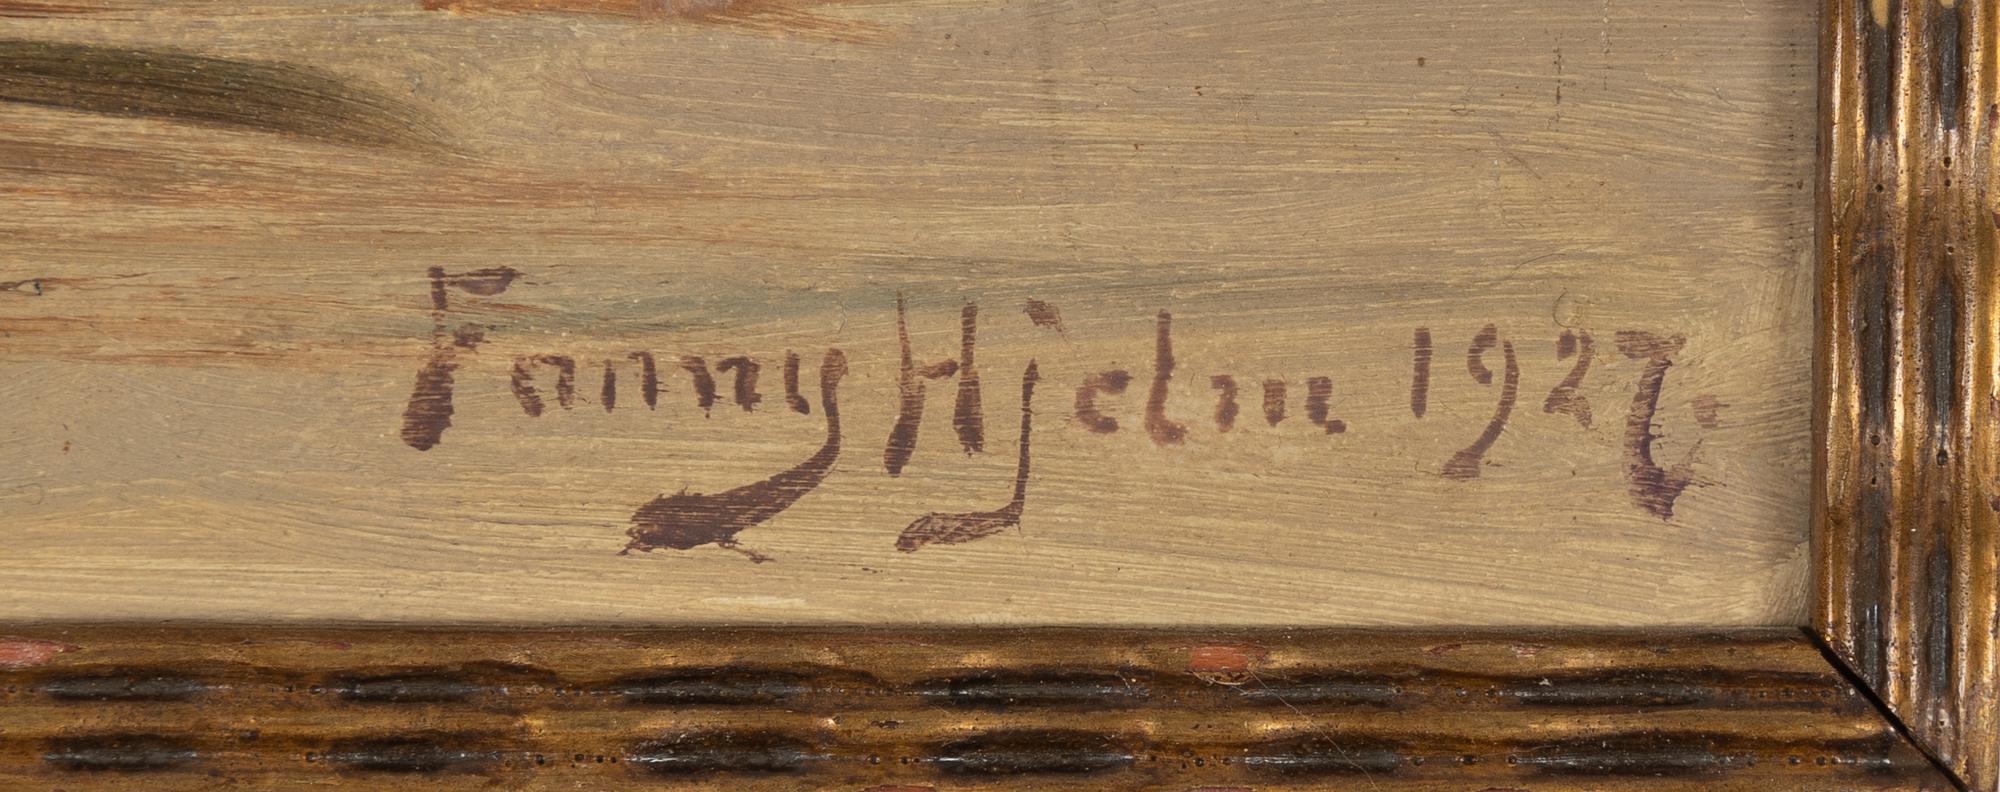 Fanny Hjelm 1927.